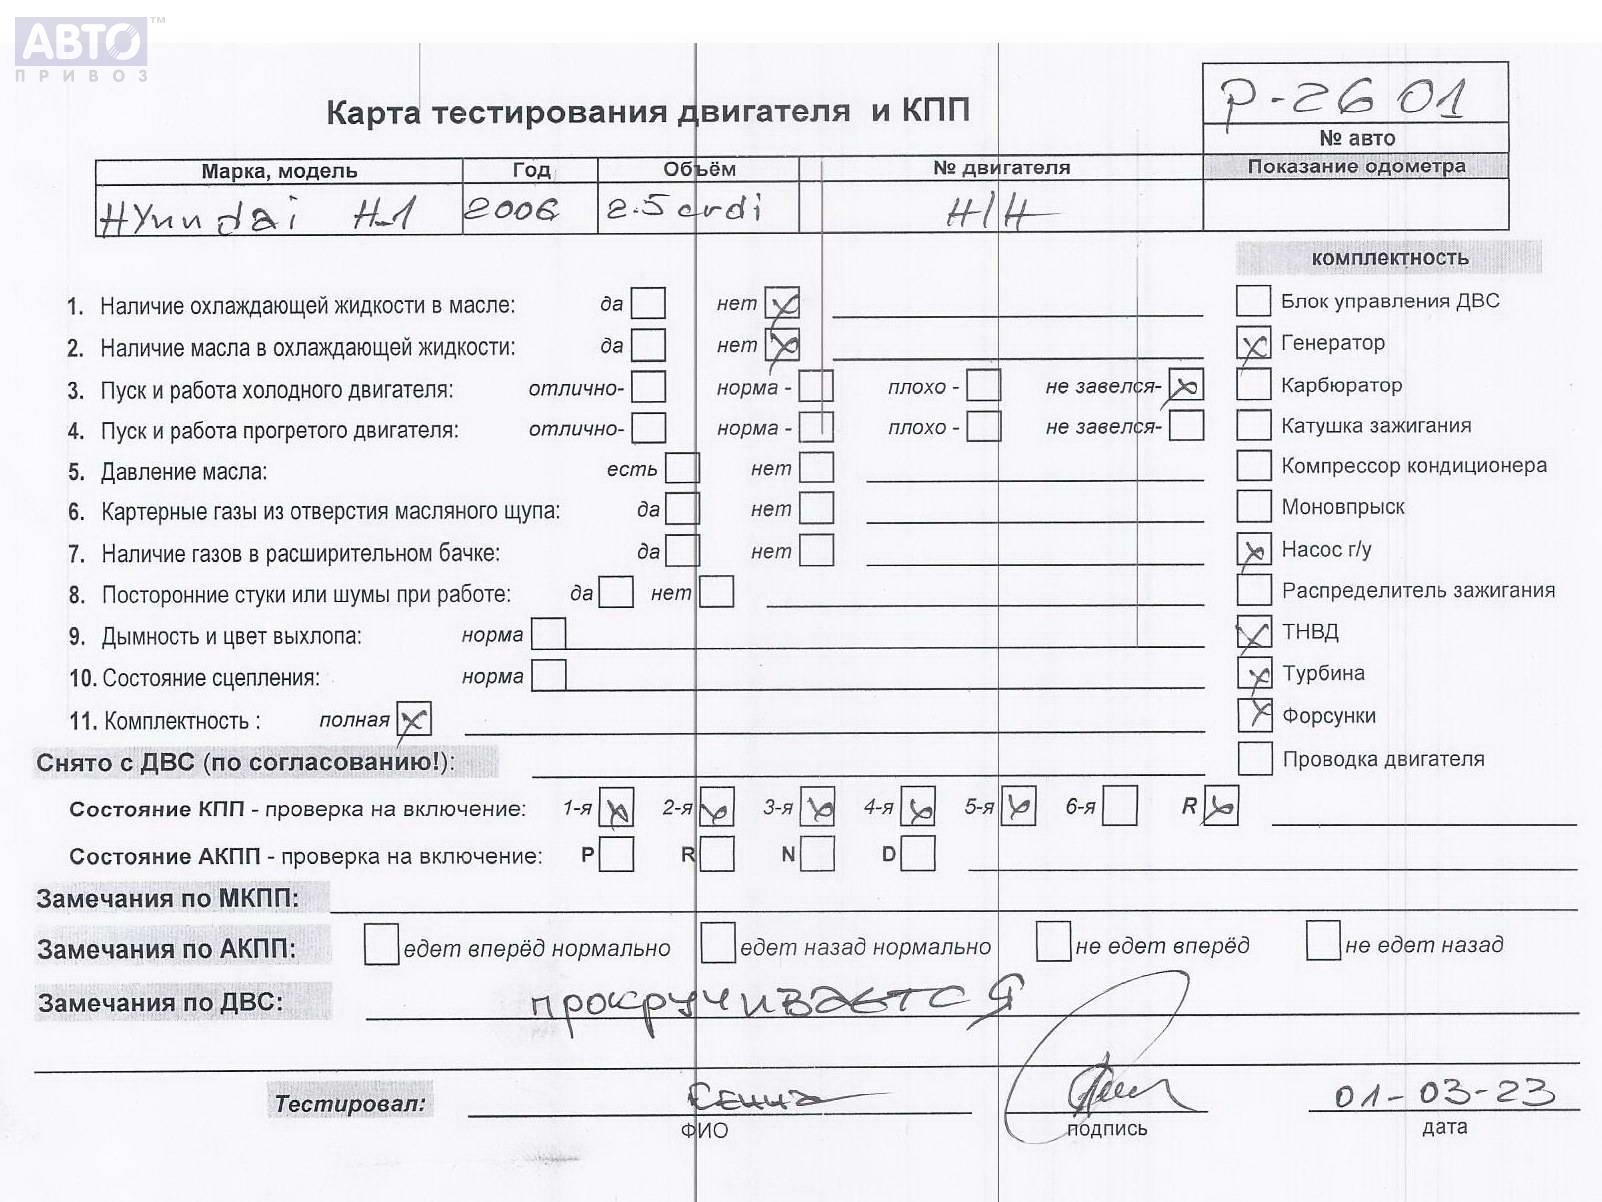 АВТО ™
ПРИВОЗ
P-2601
Карта тестирования двигателя и КПП
№ авто
Марка, модель Год Объём № двигателя Показание одометра
HYundai H-1 2006 2.5 crdi Н/Н
комплектность
1. Наличие охлаждающей жидкости в масле: да нет x
Блок управления ДВС
2. Наличие масла в охлаждающей жидкости: да нет x
x Генератор
3. Пуск и работа холодного двигателя: отлично- норма - плохо - не завелся- x
Карбюратор
4. Пуск и работа прогретого двигателя: отлично- норма - плохо - не завелся-
Катушка зажигания
5. Давление масла: есть нет
Компрессор кондиционера
6. Картерные газы из отверстия масляного щупа: да нет
Моновпрыск
7. Наличие газов в расширительном бачке: да нет
x Насос г/у
8. Посторонние стуки или шумы при работе: да нет
Распределитель зажигания
9. Дымность и цвет выхлопа: норма
x ТНВД
10. Состояние сцепления: норма
x Турбина
11. Комплектность : полная x
x Форсунки
Снято с ДВС (по согласованию!):
Проводка двигателя
Состояние КПП - проверка на включение: 1-я x 2-я x 3-я x 4-я x 5-я x 6-я R x
Состояние АКПП - проверка на включение: P R N D
Замечания по МКПП:
Замечания по АКПП: едет вперёд нормально едет назад нормально не едет вперёд не едет назад
Замечания по ДВС: прокручивается
Тестировал: 01-03-23
ФИО подпись дата